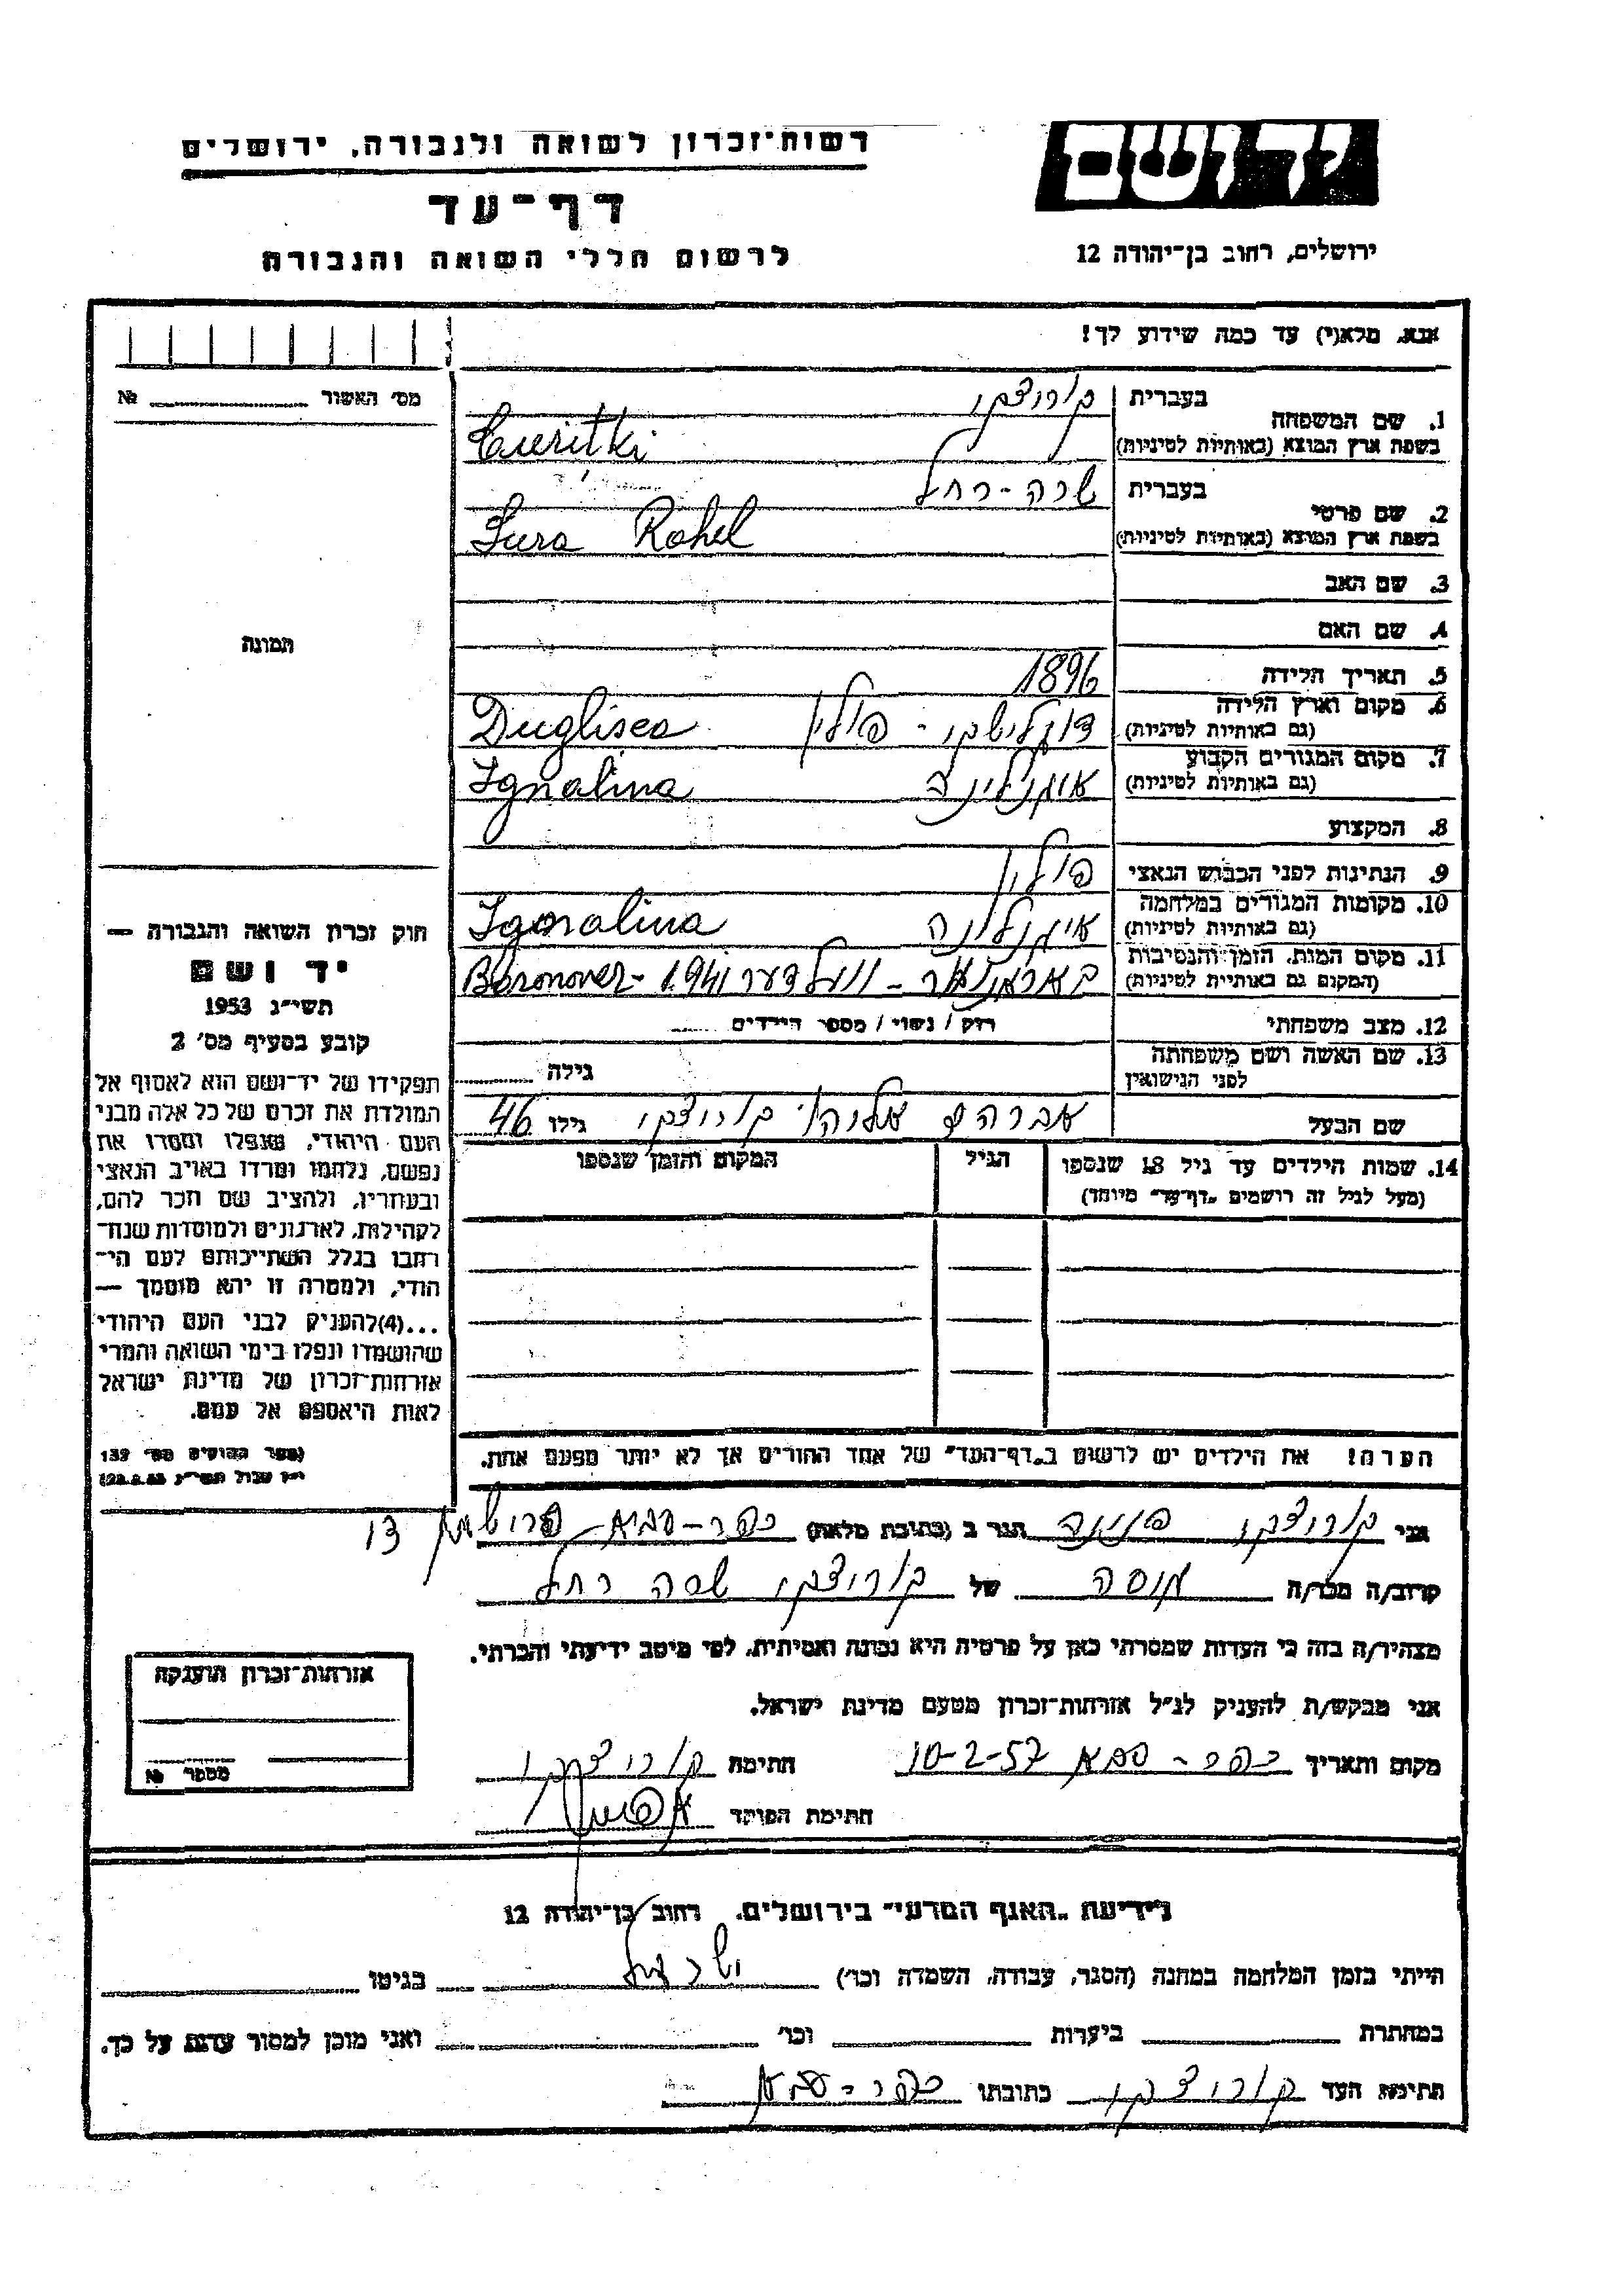 יד ושם
ירושלים, רחוב בן־יהודה 12
רשות־זכרון לשואה ולגבורה, ירושלים
דף־עד
לרשום חללי השואה והגבורה
אנא, מלא(י) עד כמה שידוע לך!
מס׳ האשור № ________
1. שם המשפחה
בעברית קורוצקי
בשפת ארץ המוצא (באותיות לטיניות)
2. שם פרטי
בעברית שרה-רחל
בשפת ארץ המוצא (באותיות לטיניות) Sura Rahel
3. שם האב
4. שם האם
5. תאריך הלידה 1896
6. מקום וארץ הלידה
(גם באותיות לטיניות) פולין
7. מקום המגורים הקבוע
(גם באותיות לטיניות) Ignalina
8. המקצוע
9. הנתינות לפני הכבוש הנאצי פולין
10. מקומות המגורים במלחמה
(גם באותיות לטיניות) Ignalina
11. מקום המות, הזמן והנסיבות
(המקום גם באותיות לטיניות) 1941
12. מצב משפחתי רוק / נשוי / מספר הילדים ......
13. שם האשה ושם משפחתה
לפני הנישואין גילה ........
שם הבעל אברהם קורוצקי גילו 46
14. שמות הילדים עד גיל 18 שנספו
(מעל לגיל זה רושמים „דף־עד” מיוחד)
הגיל
המקום והזמן שנספו
הערה! את הילדים יש לרשום ב„דף־העד” של אחד ההורים אך לא יותר מפעם אחת.
תמונה
חוק זכרון השואה והגבורה —
יד ושם
תשי״ג 1953
קובע בסעיף מס׳ 2
תפקידו של יד־ושם הוא לאסוף אל
המולדת את זכרם של כל אלה מבני
העם היהודי, שנפלו ומסרו את
נפשם, נלחמו ומרדו באויב הנאצי
ובעוזריו, ולהציב שם וזכר להם,
לקהילות, לארגונים ולמוסדות שנח־
רבו בגלל השתייכותם לעם הי־
הודי, ולמטרה זו יהא מוסמך —
...(4)להעניק לבני העם היהודי
שהושמדו ונפלו בימי השואה והמרי
אזרחות־זכרון של מדינת ישראל
לאות היאספם אל עמם.
(ספר החוקים מס׳ 132
אני קורוצקי הגר ב (כתובת מלאה) כפר-סבא 13
קרוב/ה מכר/ה של קורוצקי שרה רחל
מצהיר/ה בזה כי העדות שמסרתי כאן על פרטיה היא נכונה ואמיתית, לפי מיטב ידיעתי והכרתי.
אני מבקש/ת להעניק לנ״ל אזרחות־זכרון מטעם מדינת ישראל.
מקום ותאריך כפר-סבא 10-2-57 חתימה קורוצקי
חתימת הפוקד
אזרחות־זכרון הוענקה
מספר №
לידיעת „האגף המדעי” בירושלים, רחוב בן־יהודה 12
הייתי בזמן המלחמה במחנה (הסגר, עבודה, השמדה וכו׳) בגיטו
במחתרת ביערות וכו׳ ואני מוכן למסור עדות על כך.
חתימת העד קורוצקי כתובתו כפר-סבא